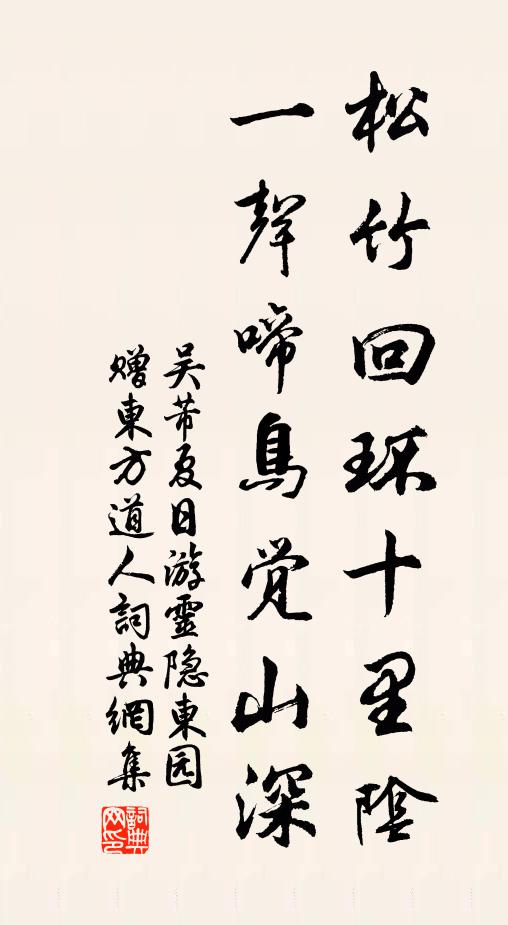 松竹回环十里陰
一聲啼鳥觉山深
吴芾夏日游靈隐東园
赠東方道人詞典網集
詞典
网印